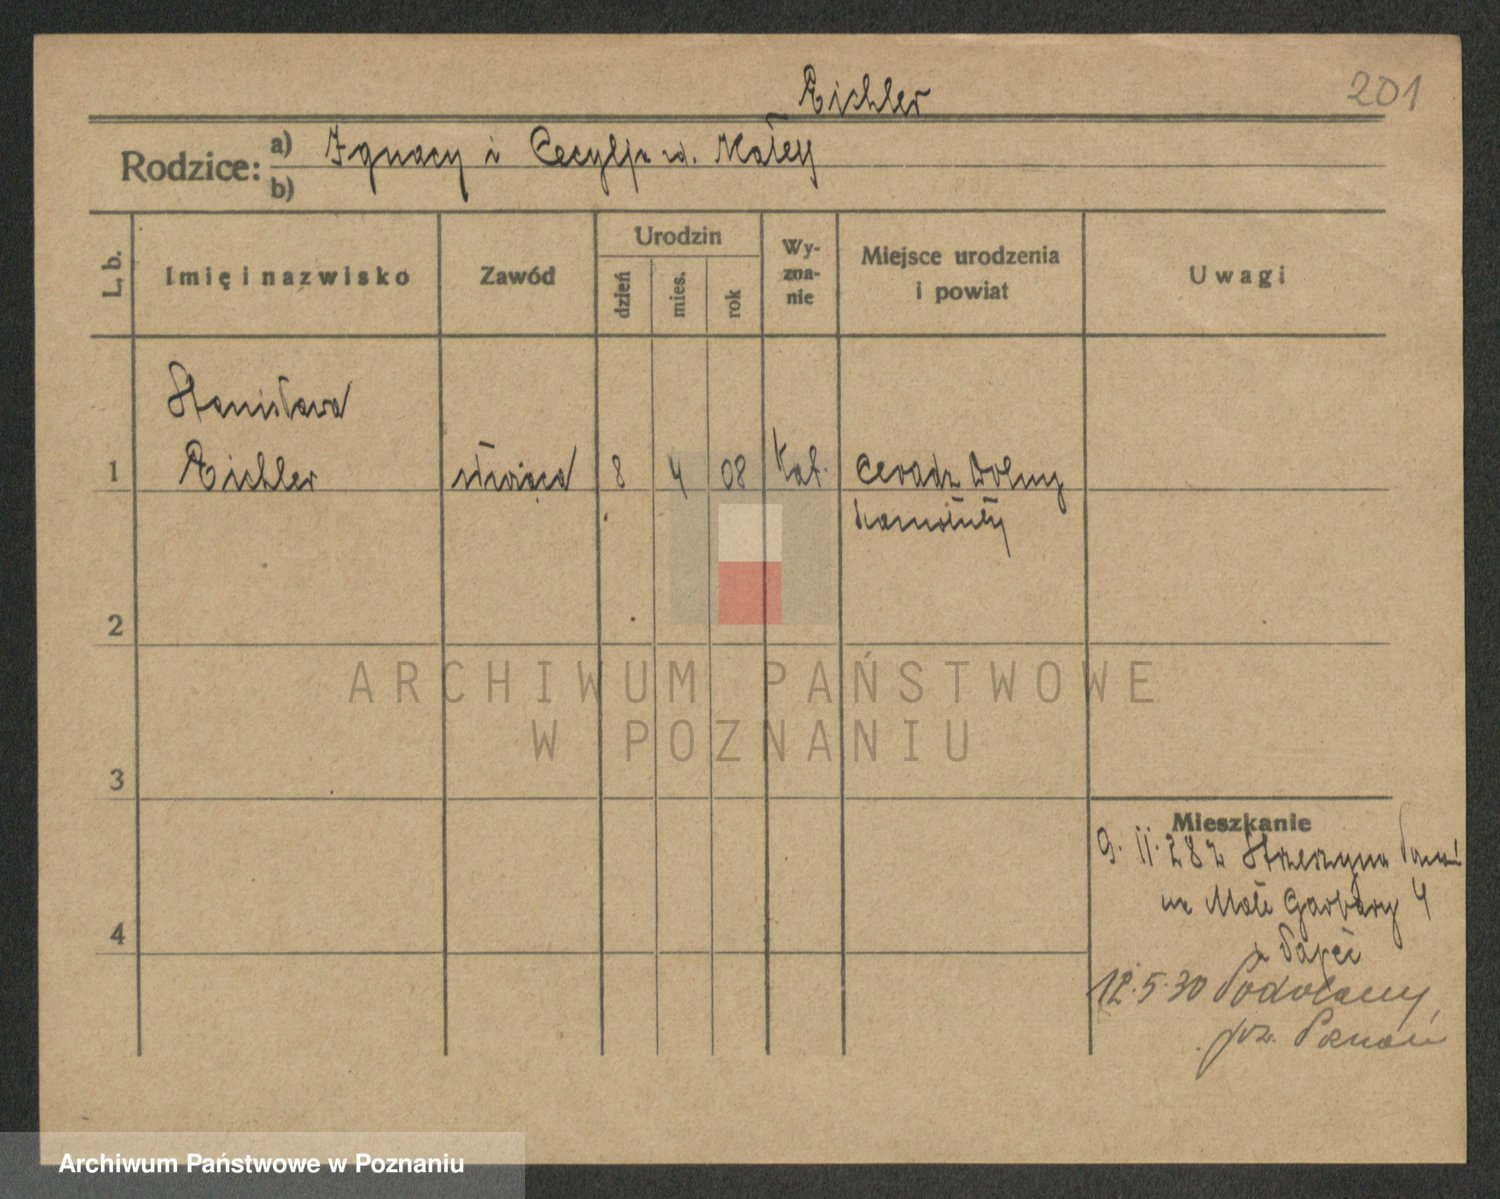 Eichler
201
Rodzice: a) Ignacy i Cecylja z d. Małej
b)
L. b.
Imię i nazwisko
Zawód
Urodzin
dzień
mies.
rok
Wy-
zna-
nie
Miejsce urodzenia
i powiat
Uwagi
Stanisława
1 Eichler służąca 8 4 08 kat. Ceradz Dolny
Szamotuły
2
3
4
Mieszkanie
9. 11. 282 Strzeszyna
Małe Garbary 4
12.5.30 Podolany,
pow. Poznań
ARCHIWUM PAŃSTWOWE
W POZNANIU
Archiwum Państwowe w Poznaniu